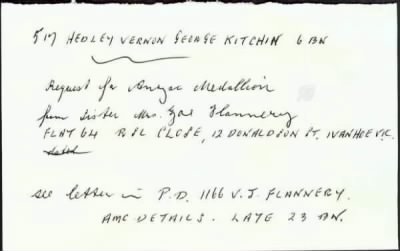 517 HEDLEY VERNON GEORGE KITCHIN 6 BN
Request for Anzac Medallion
from Sister Mrs. Zoe Flannery
FLAT 64 RSL CLOSE, 12 DONALDSON ST. IVANHOE VIC.
see letter in P.D. 1166 V. J. FLANNERY.
AMC DETAILS. LATE 23 BN.